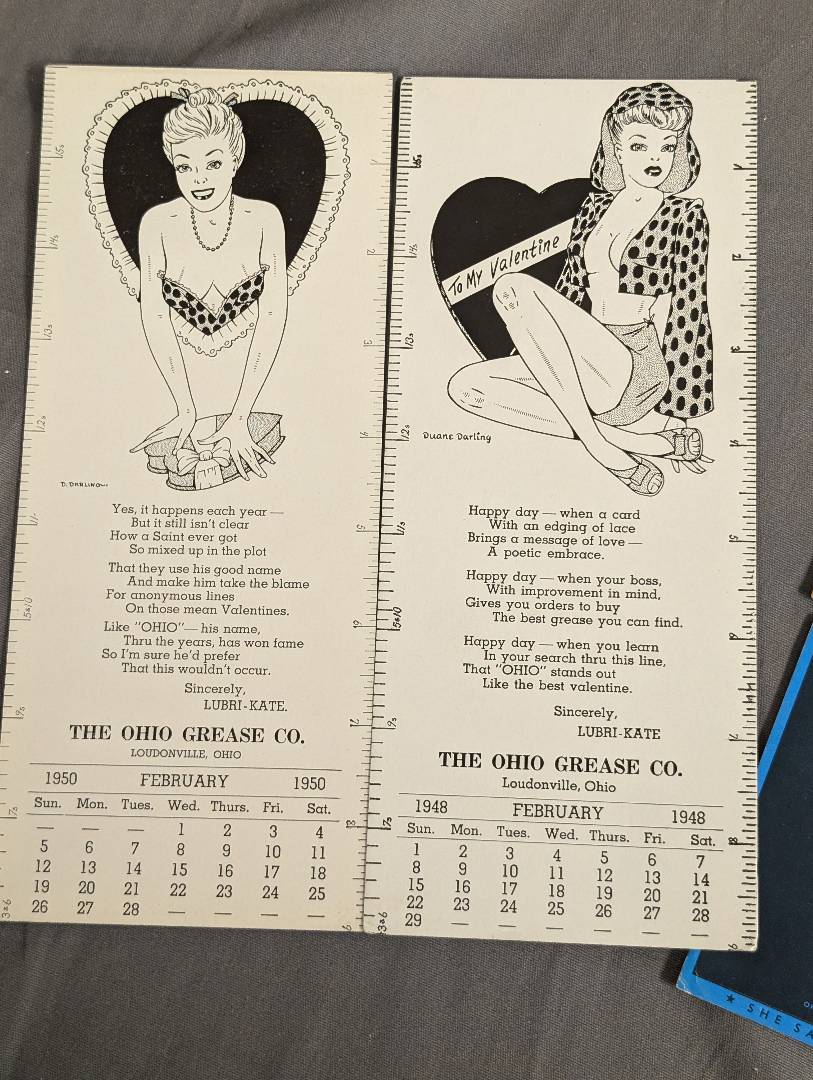 D. DARLING
Yes, it happens each year —
But it still isn't clear
How a Saint ever got
So mixed up in the plot
That they use his good name
And make him take the blame
For anonymous lines
On those mean Valentines.
Like "OHIO"— his name,
Thru the years, has won fame
So I'm sure he'd prefer
That this wouldn't occur.
Sincerely,
LUBRI-KATE.
THE OHIO GREASE CO.
LOUDONVILLE, OHIO
1950 FEBRUARY 1950
Sun. Mon. Tues. Wed. Thurs. Fri. Sat.
— — — 1 2 3 4
5 6 7 8 9 10 11
12 13 14 15 16 17 18
19 20 21 22 23 24 25
26 27 28 — — — —
To My Valentine
Duane Darling
Happy day — when a card
With an edging of lace
Brings a message of love —
A poetic embrace.
Happy day — when your boss,
With improvement in mind,
Gives you orders to buy
The best grease you can find.
Happy day — when you learn
In your search thru this line,
That "OHIO" stands out
Like the best valentine.
Sincerely,
LUBRI-KATE
THE OHIO GREASE CO.
Loudonville, Ohio
1948 FEBRUARY 1948
Sun. Mon. Tues. Wed. Thurs. Fri. Sat.
1 2 3 4 5 6 7
8 9 10 11 12 13 14
15 16 17 18 19 20 21
22 23 24 25 26 27 28
29 — — — — — —
★ SHE SA